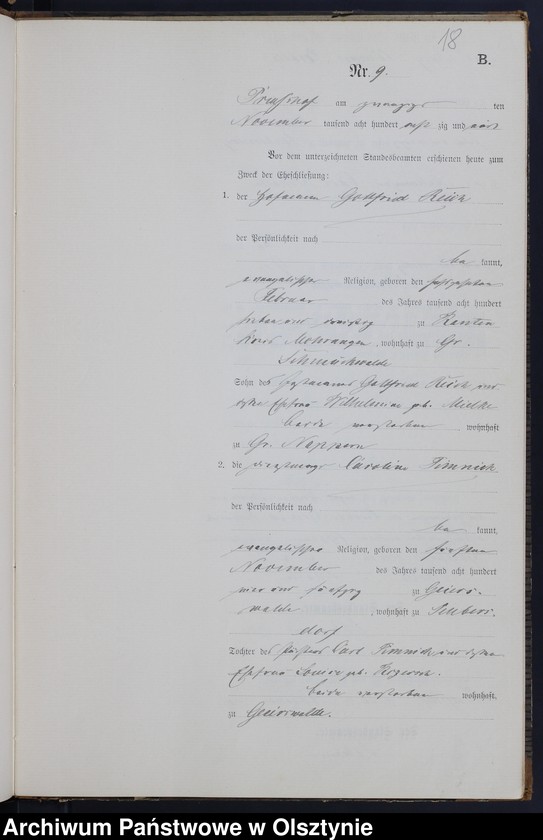 18
B.
Nr. 9.
am ten
November tausend acht hundert acht zig und acht
Vor dem unterzeichneten Standesbeamten erschienen heute zum
Zweck der Eheschließung:
1. der Gottfried Reich
der Persönlichkeit nach
be kannt,
evangelischer Religion, geboren den
Februar des Jahres tausend acht hundert
sieben und dreißig zu Kanten
Kreis Mohrungen, wohnhaft zu Gr.
Schmückwalde
Sohn des Gottfried Reich und
Ehefrau Wilhelmine geb. Mielke
beide verstorben wohnhaft
zu Gr. Nappern
2. die Caroline Timnick
der Persönlichkeit nach
be kannt,
evangelischer Religion, geboren den fünften
November des Jahres tausend acht hundert
vier und fünfzig zu Geiers-
walde, wohnhaft zu Seubers-
dorf
Tochter des Carl Timnick und
Ehefrau Louise geb.
beide verstorben wohnhaft.
zu Geierswalde.
Archiwum Państwowe w Olsztynie